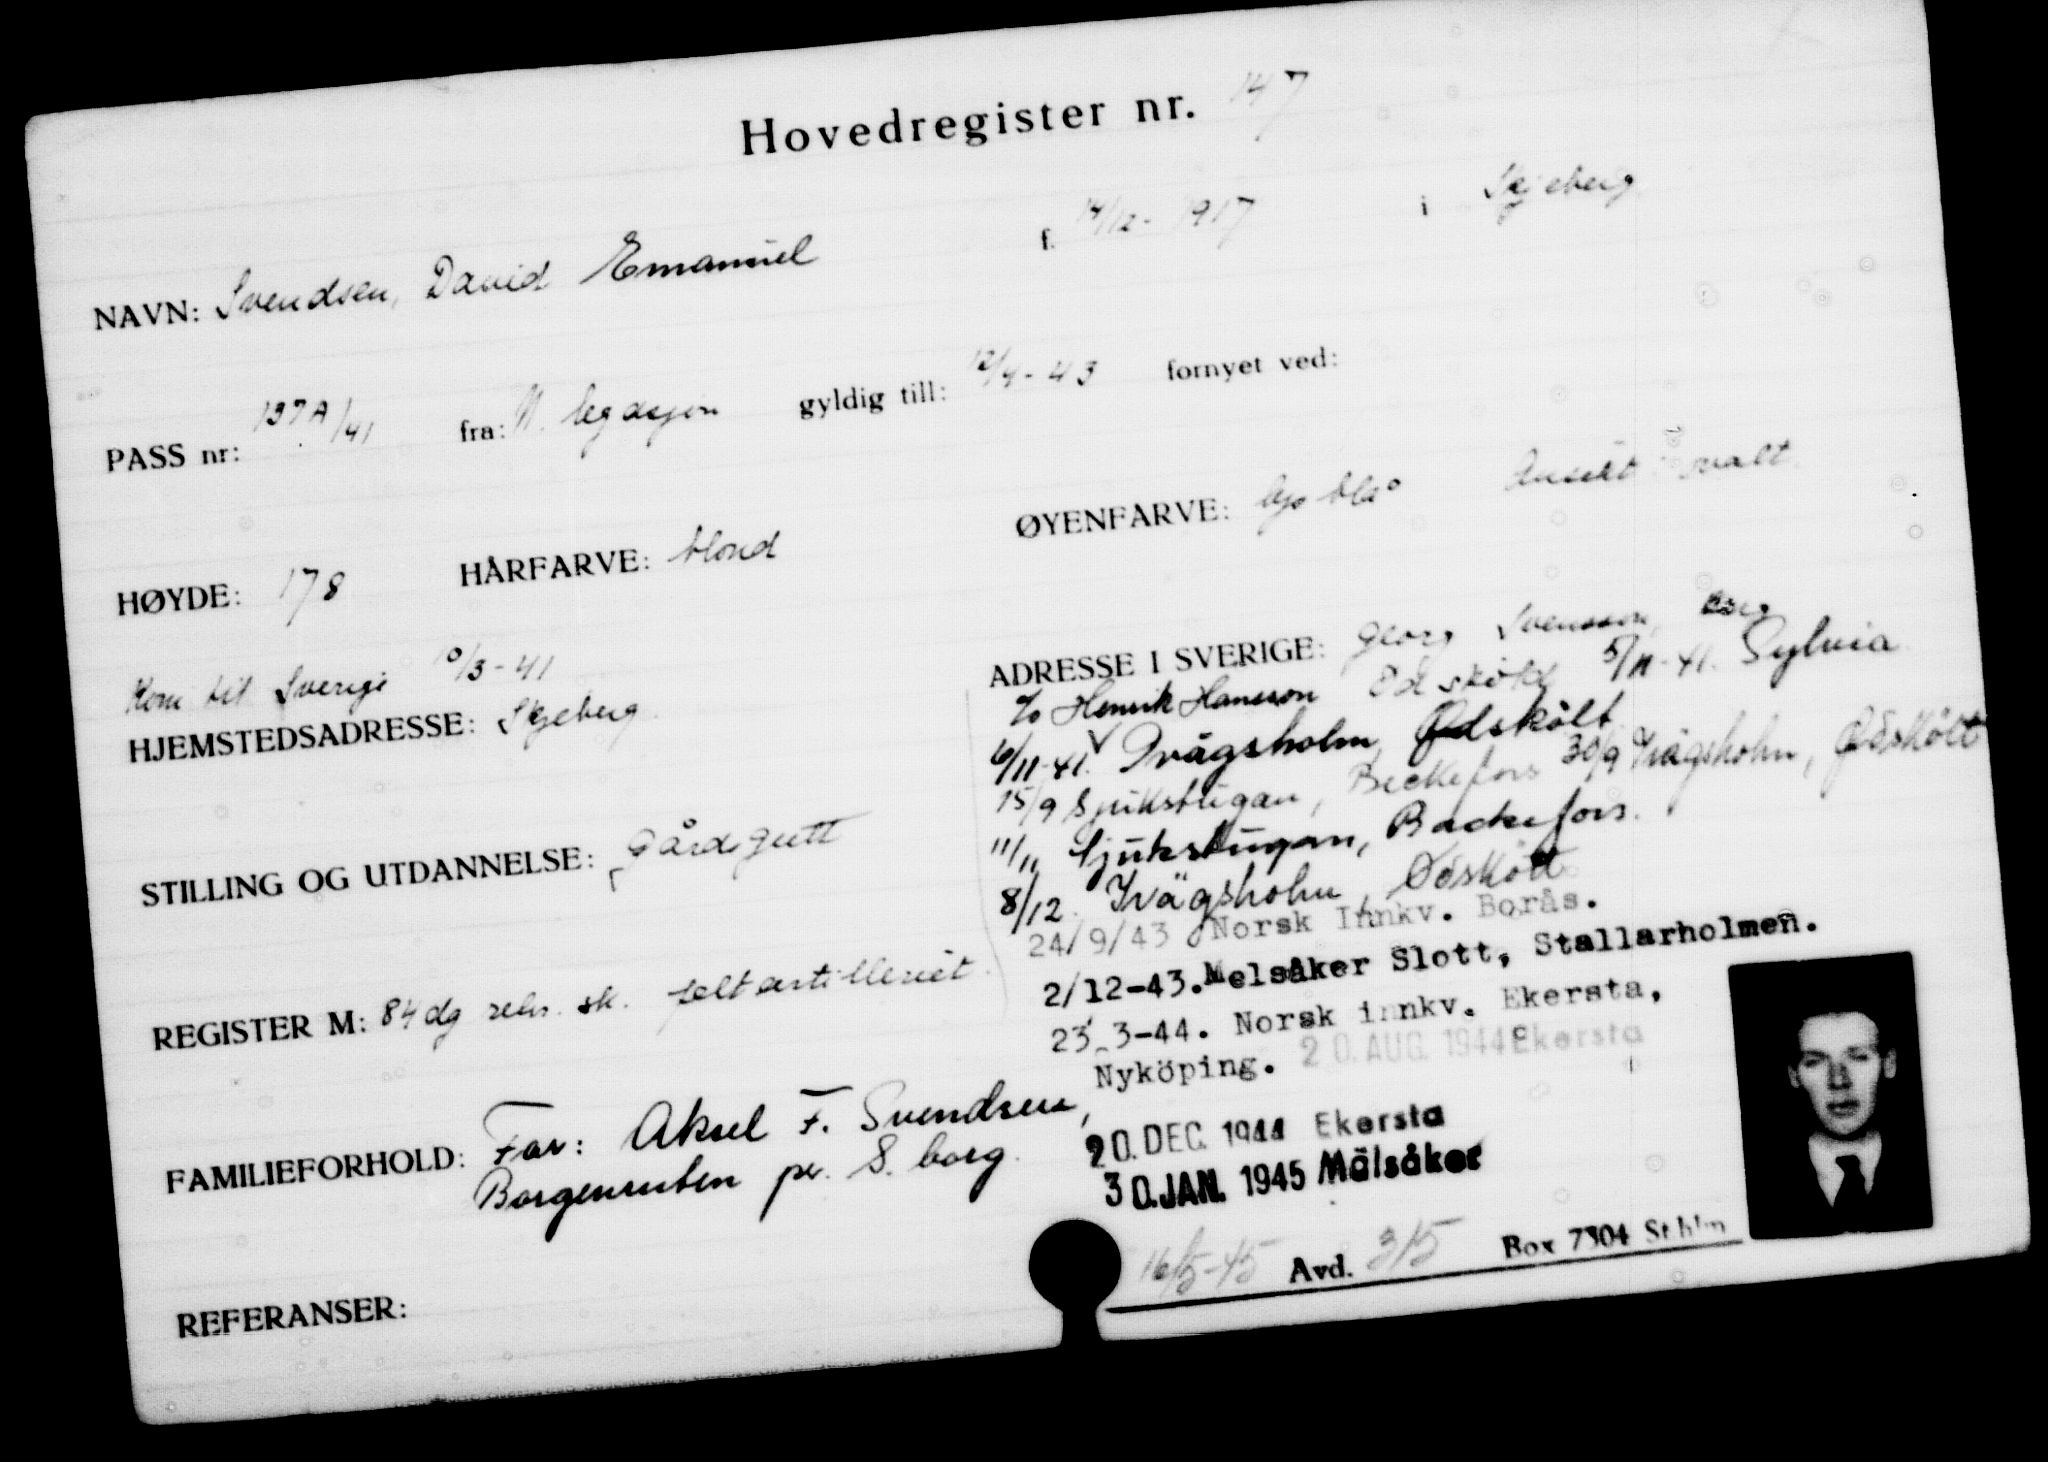 Hovedregister nr. 147
NAVN: Svendsen, David Emanuel f. 14/12-1917 i Skjeberg
PASS nr: 137A/41 fra: N. legasjon gyldig till: 12/4-43 fornyet ved:
HØYDE: 178 HÅRFARVE: blond ØYENFARVE: lys blå Ansikt ovalt
Kom til Sverige 10/3-41
HJEMSTEDSADRESSE: Skjeberg
STILLING OG UTDANNELSE: Gårdsgutt
REGISTER M: 84 dg rekr. sk. feltartilleriet.
FAMILIEFORHOLD: Far: Aksel F. Svendsen,
Borgenruten pr. S. borg.
REFERANSER:
ADRESSE I SVERIGE: Georg Svensson,
c/o Henrik Hansson 5/11-41. Sylvia
6/11-41. Ivägsholm, Ødskølt
15/9 Sjukstugan, Beckefors 30/9 Ivägsholm, Ødskölt
11/11 Sjukstugan, Backefors.
8/12. Ivägsholm, Ødskölt
24/9/43 Norsk Innkv. Borås.
2/12-43. Melsåker Slott, Stallarholmen.
23/3-44. Norsk innkv. Ekersta,
Nyköping. 20. AUG. 1944 Ekersta
20. DEC. 1944 Ekersta
30. JAN. 1945 Mälsåker
16/5-45 Avd. 315 Box 7304 Sthlm